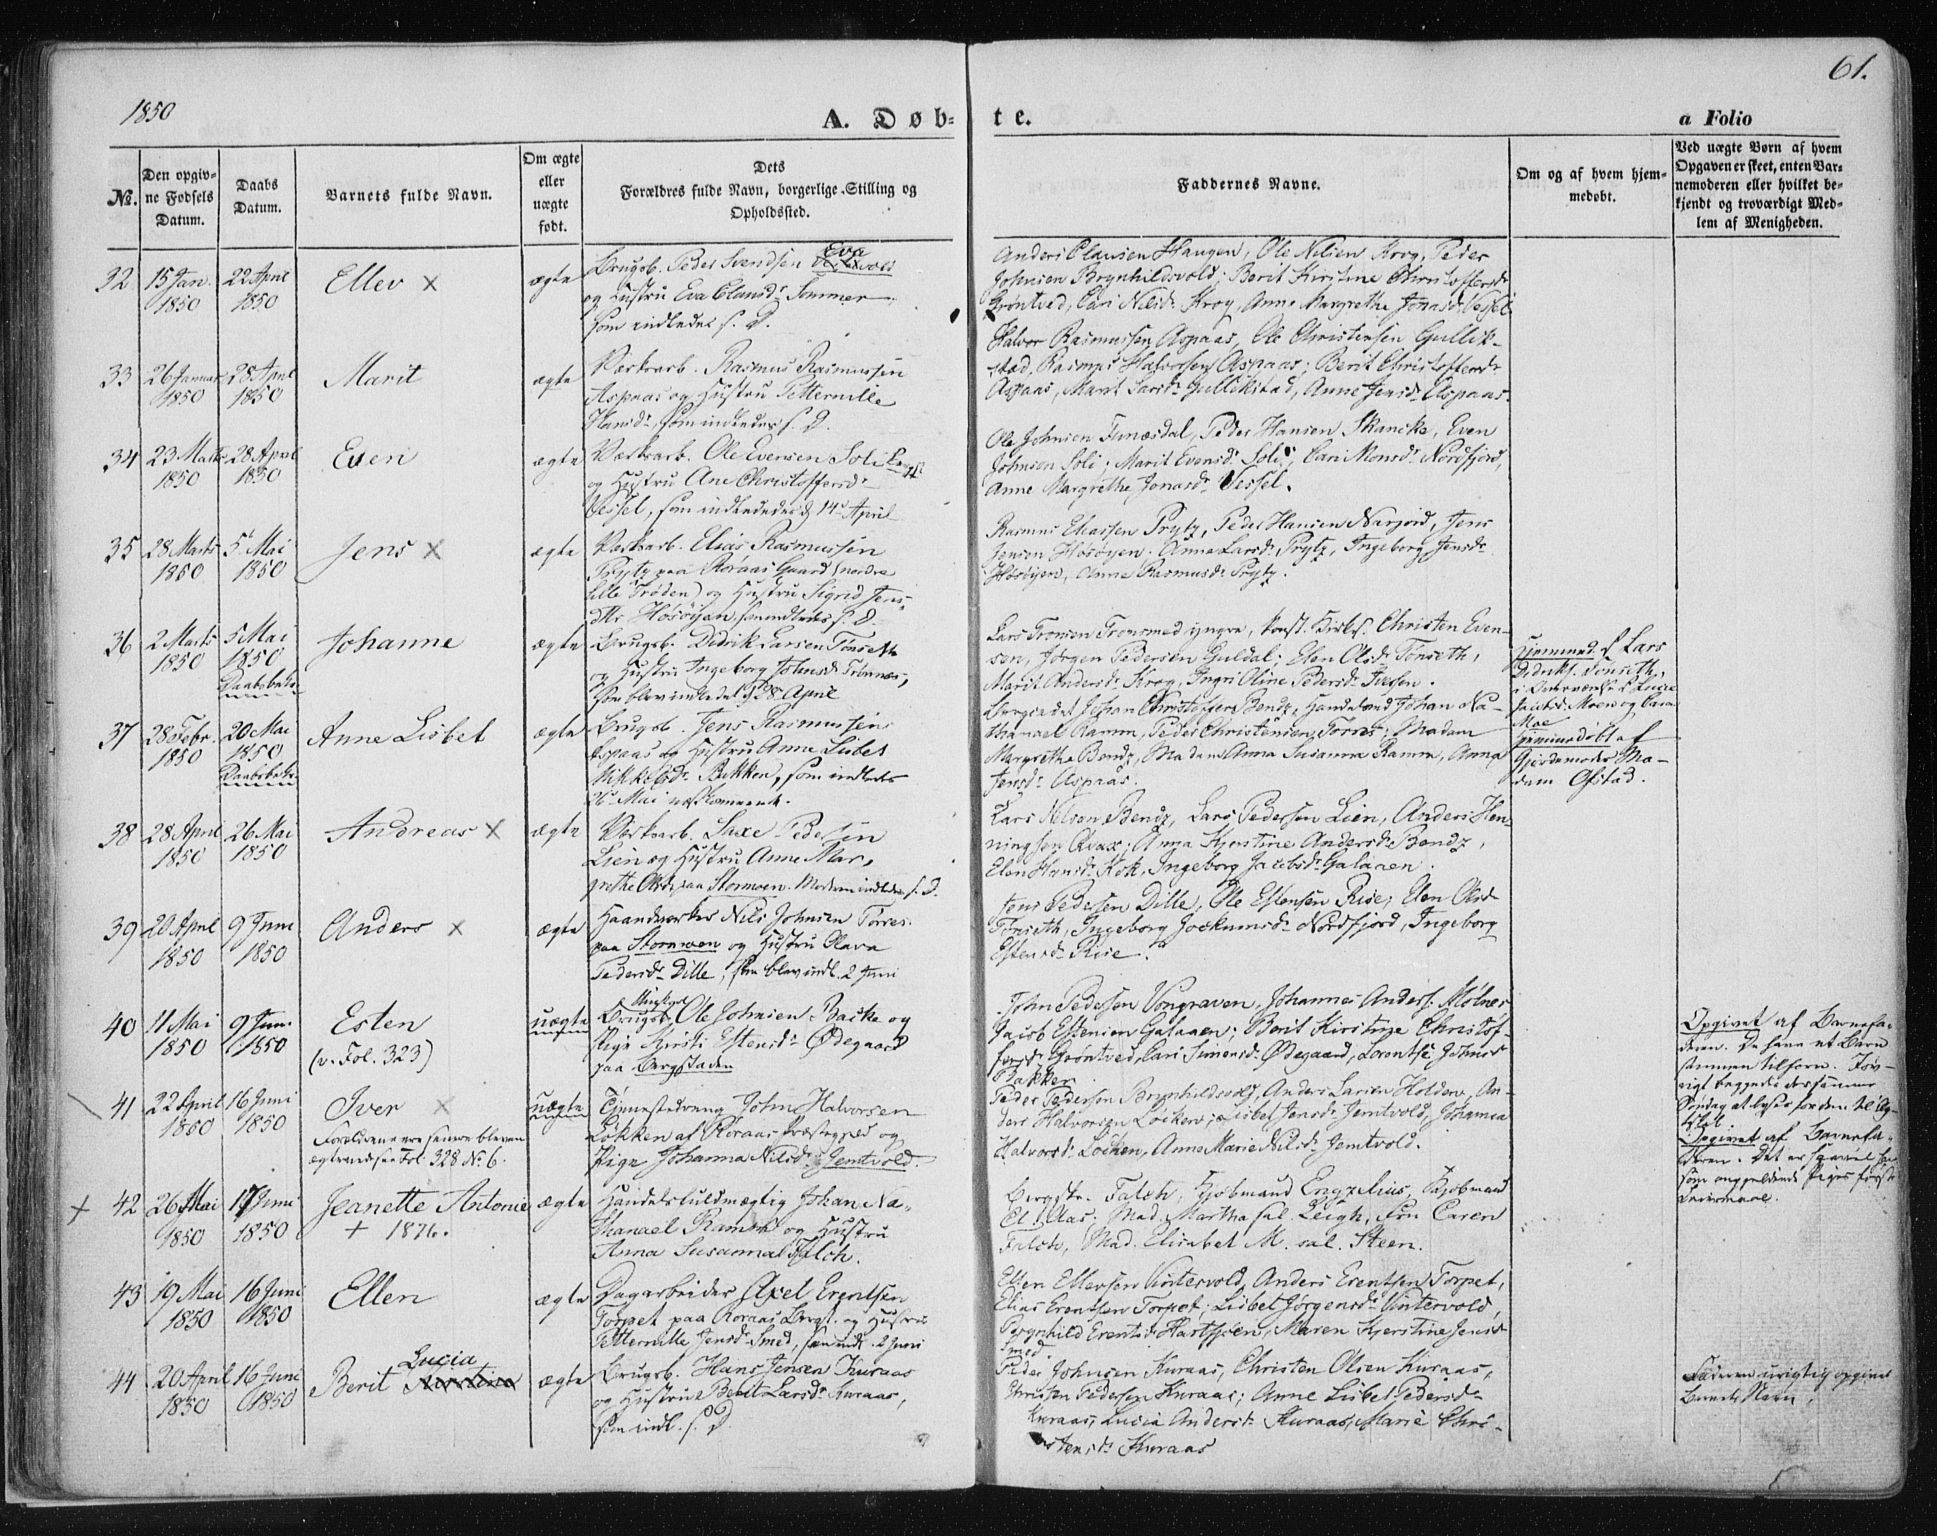 1850
A. Døb-
te.
61.
a Folio
No.
Den opgiv-
ne Fødsels
Datum.
Daabs
Datum.
Barnets fulde Navn.
Om ægte
eller
uægte
født.
Dets
Forældres fulde Navn, borgerlige Stilling og
Opholdssted.
Faddernes Navne.
Om og af hvem hjem-
medøbt.
Ved uægte Børn af hvem
Opgaven er skeet, enten Bar-
nemoderen eller hvilket be-
kjendt og troværdigt Med-
lem af Menigheden.
32
15 Jan.
1850
22 April
1850
Ellev ×
ægte
Brugsb. Peder Svendsen Eva
og Hustru Eva Clausdr Sommer
som indledes s. D.
Anders Clausen Haugen, Ole Nilsen Krog, Peder
Johnsen Brynhildsvold; Berit Kirstine Christoffersdr
Grøntved, Cari Nilsdr Krog, Anne Margrethe Jonasdr Vessel
33
26 Januar
1850
28 April
1850
Marit
ægte
Værksarb. Rasmus Rasmussen
Aspaas og Hustru Petternille
Hansdr, som indledes s. D.
Halvor Rasmussen Aspaas, Ole Christensen Gullik-
stad, Rasmus Halvorsen Aspaas; Berit Christoffersdr
Aspaas, Marit Larsdr Gullikstad, Anne Jensdr Aspaas.
34
23 Marts
1850
28 April
1850
Even
ægte
Værksarb. Ole Evensen Soli
og Hustru Ane Christoffersdr
Vessel, som indlededes d 14 April
Ole Johnsen Funæsdal, Peder Hansen Skancke, Even
Johnsen Soli; Marit Evensdr Soli, Cari Monsdr Nordfjord,
Anne Margrethe Jonasdr Vessel.
35
28 Marts
1850
5t Mai
1850
Jens ×
ægte
Værksarb. Elias Rasmussen
Prytz paa Roraas Gaard (nordre
lille Trøden) og Hustru Sigrid Jens-
dtr Hosøyen, som indledes s. D.
Rasmus Eliassen Prytz, Peder Hansen Narjord, Jens
Jensen Hosøyen. Anne Larsdr Prytz, Ingeborg Jensdr
Hosøyen, Anne Rasmusdr Prytz.
36
2 Marts
1850
5 Mai
1850
Daabsbekr.
Johanne
ægte
Brugsb. Didrik Larsen Tønseth
og Hustru Ingeborg Johnsdr Trønnes,
som blev indledet d 28 April
Lars Tronsen Tronsmed yngre, konst. Kirks. Christen Even-
sen, Jørgen Pedersen Guldal; Elen Olsdr Tønseth,
Marit Andersdr Krog, Ingri Oline Pedersdr Ivessen.
Hjemmed. af Lars
Didrikf. Tønseth,
Jacobsd. Moen og Cari
Moe
37
28 Febr.
1850
20 Mai
1850
Daabsbekr.
Anne Lisbet
ægte
Brugsb. Jens Rasmussen
Aspaas og Hustru Anne Lisbet
Mikkelsdr Bakken, som indledes
26 Mai næstkommende.
Bergcadet Johan Christoffer Bendz, Handelsmd Johan Na-
thanael Ramm, Peder Christensen Torres; Madam
Margrethe Bendz, Madam Anna Susanna Ramm, Anne
Jensdr Aspaas.
Hjemmedøbt af
Gjordemoder Ma-
dam Øfstad.
38
28 April
1850
26 Mai
1850
Andreas ×
ægte
Værksarb. Saxe Pedersen
Lien og Hustru Anne Mar-
grethe Olsdr paa Stormoen. Moderen indledes s. D.
Lars Nilsen Bendz, Lars Pedersen Lien, Anders Hen-
ningsen Qvax; Anna Kjerstine Andersdr Bendz,
Elen Hansdr Kok, Ingeborg Jacobsdr Galaaen.
39
20 April
1850
9 Juni
1850
Anders ×
ægte
Haandværker Nils Johnsen Torres
paa Stormoen og Hustru Olava
Pedersdr Dille, som blev indl. 2 Juni
Jens Pedersen Dille, Ole Estensen Rise; Elen Olsdr
Tønseth, Ingeborg Jockumsdr Nordfjord, Ingeborg
Estensdr Rise.
40
11 Mai
1850
9 Juni
1850
Esten
(v. Fol. 323)
uægte
Ungkarl
Brugsb. Ole Johnsen Bakke og
Pige Kirsti Estensdr Ødegaard
paa Bergstaden
John Pedersen Vongraven, Johannes Anders. Molnes
Jacob Estensen Galaaen; Berit Kirstine Christof-
fersdr Grøntved, Cari Simensdr Ødegaard, Lorentse Johnsdr
Bakken
Opgivet af Barnefa-
deren. De have et Barn
sammen tilforn. Føv-
rigt begjærede de samme
Søndag at lyses for dem til Æg-
teskab.
41
22 April
1850
16 Juni
1850
Iver ×
Forældrene ere senere blevne
ægteviede see Fol. 328 No 6.
uægte
Tjenestedreng John Halvorsen
Løkken af Roraas Præstegjeld og
Pige Johanna Nilsdr Jemtvold.
Peder Pedersen Brynhildsvold, Anders Larsen Holden, An-
ders Halvorsen Løcken; Lisbet Jensdr Jemtvold, Johanna
Halvorsdr Løcken, Anne Marie Nilsdr Jemtvold.
Opgivet af Barnefa-
deren. Det er saavel hans
som angjeldende Piges første
Leiermaal.
42
26 Mai
1850
17 Juni
1850
Jeanette Antonie
+ 1876.
ægte
Handelsfuldmægtig Johan Na-
thanael Ramm og Hustru
Anna Susanna Falch.
Bergskr. Falch, Kjøbmand Engzelius, Kjøbmand
El. Aas; Mad. Martha sal. Leigh, Frn Caren
Falch, Mad. Elisabet M. sal. Steen.
43
19 Mai
1850
16 Juni
1850
Ellen
ægte
Dagarbeider Axel Erentsen
Torpet paa Roraas Bergst. og Hustru
Petternille Jensdr Smed, som indl. 2 Juni
Ellen Ellevsen Vintervold, Anders Erentsen Torpet,
Elias Erentsen Torpet; Lisbet Jørgensdr Vintervold,
Brynhild Erentsdr Hartsoen, Maren Kjerstine Jensdr
Smed
44
20 April
1850
16 Juni
1850
Lucia
Berit
ægte
Brugsb. Hans Jensen Kuraas
og Hustru Berit Larsdr Kuraas,
som indl. s. D.
Peder Johnsen Kuraas, Christen Olsen Kuraas,
Christen Pedersen Kuraas; Anne Lisbet Pedersdr
Kuraas, Lucia Andersdr Kuraas, Marie Chri-
stensdr Kuraas
Faderen urigtig opgivet
Barnets Navn.